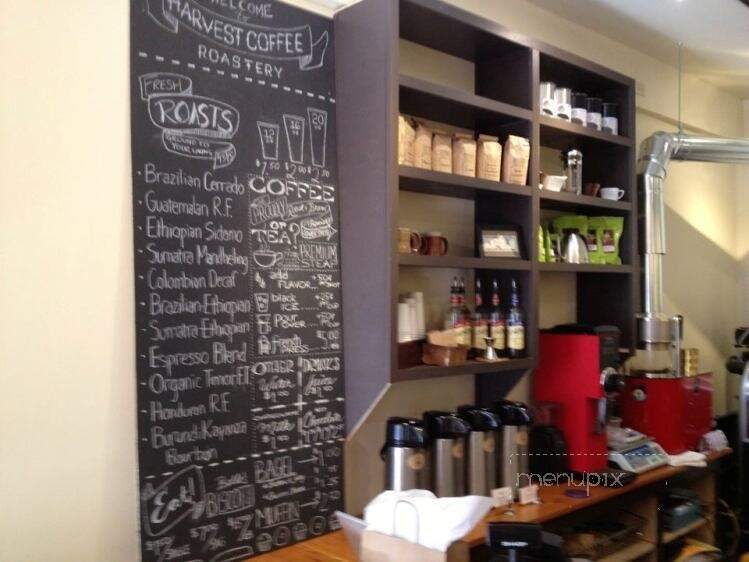 WELCOME
to
HARVEST COFFEE
ROASTERY
FRESH
ROASTS
GROUND TO
YOUR LIKING
12 oz
16 oz
20 oz
$1.50
$2.00
$2.50
• Brazilian Cerrado
• Guatemalan R.F.
• Ethiopian Sidamo
• Sumatra Mandheling
• Colombian Decaf
• Brazilian-Ethiopian
• Sumatra-Ethiopian
• Espresso Blend
• Organic Timor F.T.
• Honduran R.F.
• Burundi Kayanza
Bourbon
COFFEE
PROUDLY
OR
TEA?
PREMIUM
STEAP
add
FLAVOR...
+50¢
black
ICE
+25¢
POUR
OVER
+50¢
French
PRESS
OTHER
DRINKS
Water
Juice
Chocolate
Eat!
BISCOTTI
BAGEL
MUFFIN
menupix